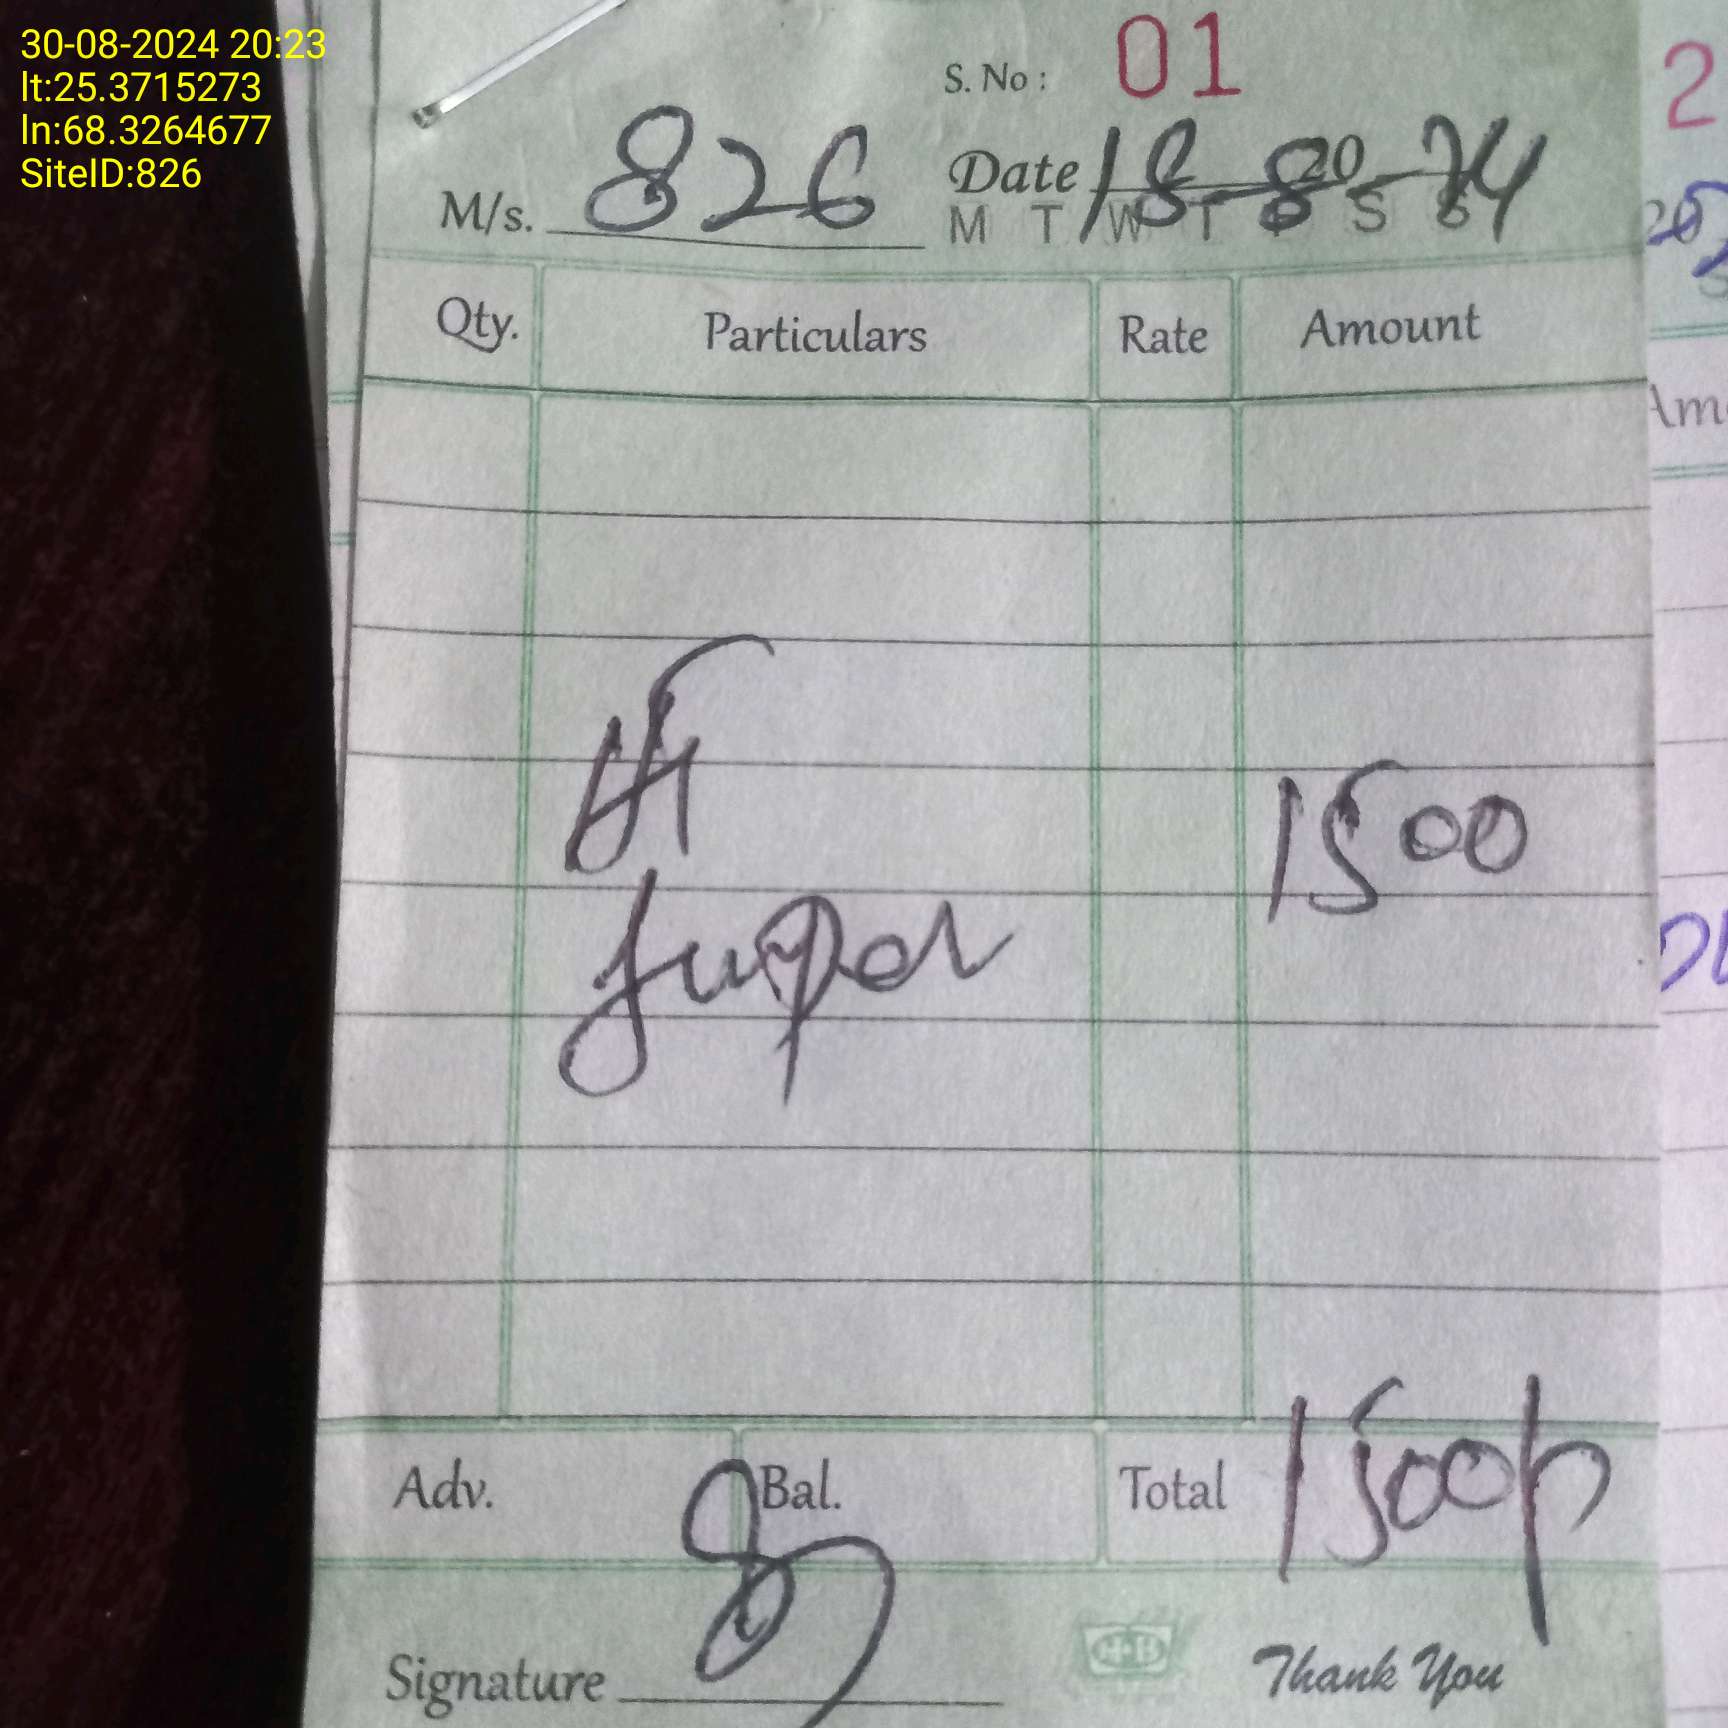 30-08-2024 20:23
lt:25.3715273
ln:68.3264677
SiteID:826
S. No : 01
2
M/s. 826 Date 18-8-24
20
M T W T F S S
Qty. Particulars Rate Amount
Am
1500
Adv. Bal. Total 1500
Signature
H·B
Thank You